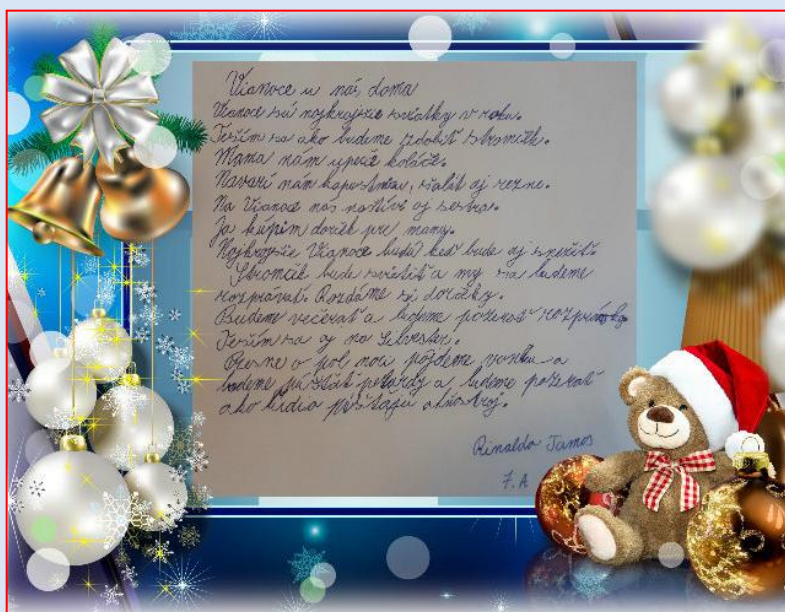 Vianoce u nás doma
Vianoce sú najkrajšie sviatky v roku.
Teším sa ako budeme zdobiť stromček.
Mama nám upečie koláče.
Navarí nám kapustnicu, šalát aj rezne.
Na Vianoce nás navštívi aj sestra.
Ja kúpim darček pre mamu.
Najkrajšie Vianoce budú keď bude aj snežiť.
Stromček bude svietiť a my sa budeme
rozprávať. Rozdáme si darčeky.
Budeme večerať a budeme pozerať rozprávky
Teším sa aj na Silvester.
Presne o pol noci pôjdeme vonku a
budeme púšťať petardy a budeme pozerať
ako ľudia púšťajú ohňostroj.
Rinaldo Jamos
7. A